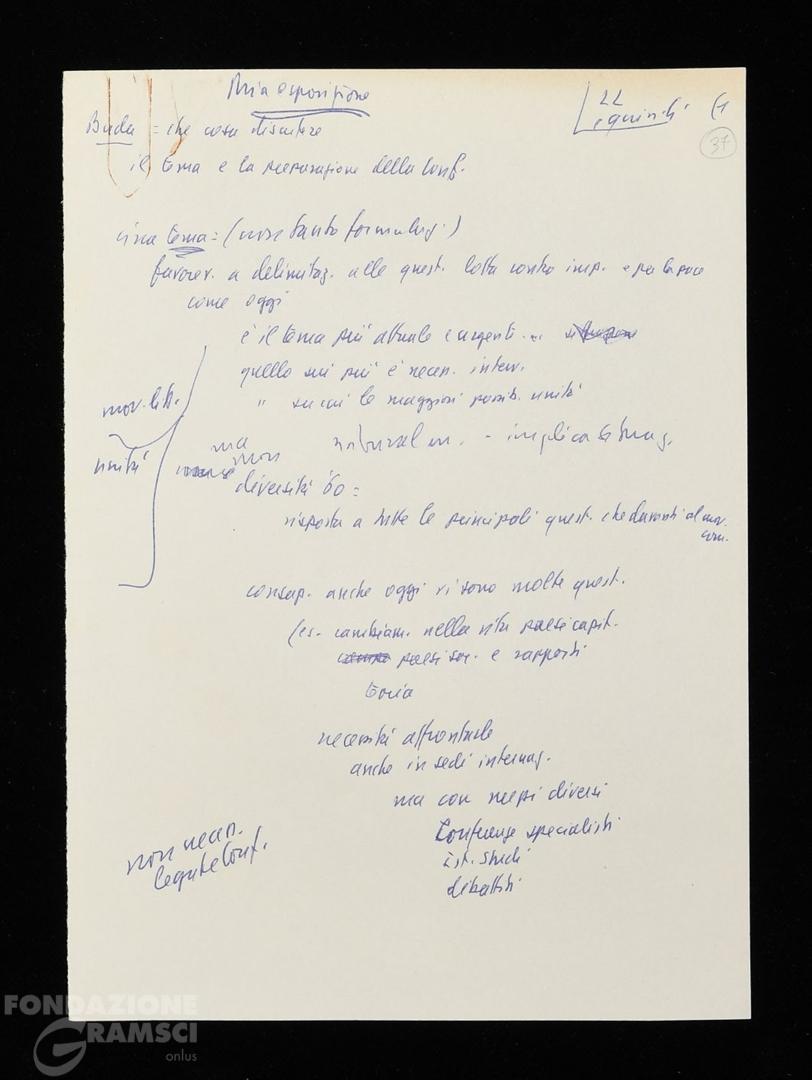 Mia esposizione
LL
e quindi (1
37
Buda = che cosa discutere
il tema e la preparazione della Conf.
circa tema = (non tanto formulaz.)
favorev. a delimitaz. alle quest. lotta contro imp. e per la pace
come oggi
è il tema più attuale e urgente
quello su cui più è necess. interv.
" su cui le maggiori possib. unità
mov. lib.
unità
ma naturalm. - implica strateg.
non
diversità '60 =
risposta a tutte le principali quest. che davanti al mov.
com.
consap. anche oggi vi sono molte quest.
(es. cambiam. nella vita paesi capit.
paesi soc. e rapporti
teoria
necessità affrontarle
anche in sedi internaz.
ma con mezzi diversi
Conferenze specialisti
Ist. studi
dibattiti
non necess.
legate Conf.
FONDAZIONE
GRAMSCI
onlus